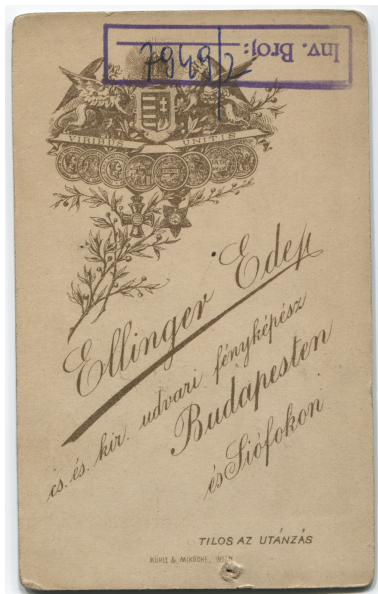 Inv. Broj: 7949/2
VIRIBUS UNITIS
Ellinger Ede
cs. és. kir. udvari fényképész
Budapesten
és Siófokon
TILOS AZ UTÁNZÁS
KÜHLE & MIKSCHE, WIEN